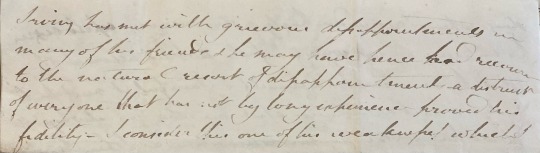 Irving has met with grievous disappointments in
many of his friends & he may have hence had recourse
to the natural resort of disappointment - a distrust
of everyone that has not by long experience proved his
fidelity - I consider this one of his weaknesses which